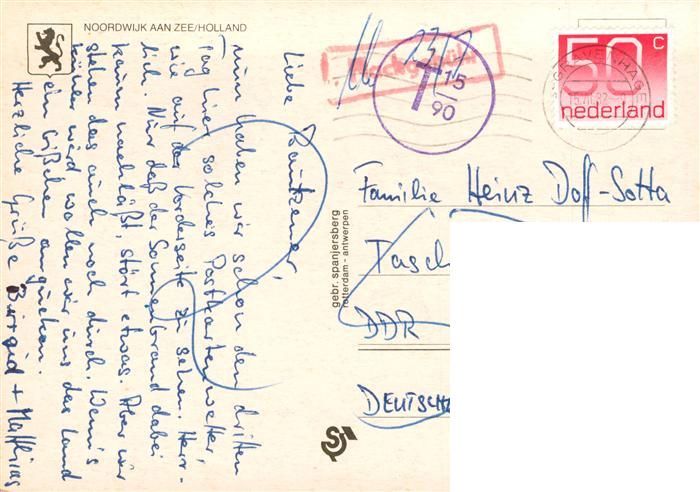 NOORDWIJK AAN ZEE/HOLLAND
Liebe Bautzener,
nun haben wir schon den dritten
Tag hier solches Postkartenwetter,
wie auf der Vorderseite zu sehen. Herr-
lich. Nur daß der Sonnenbrand dabei
kaum nachläßt, stört etwas. Aber wir
stehen das auch noch durch. Wenn's
kühler wird wollen wir uns das Land
ein bißchen angucken.
Herzliche Grüße Birgid + Matthias
gebr. spanjersberg
rotterdam - antwerpen
Nachgebühr
T 15
90
50 c
nederland
'S-GRAVENHAGE
Familie Heinz Doff-Sotta
Tasch
DDR
DEUTSCH